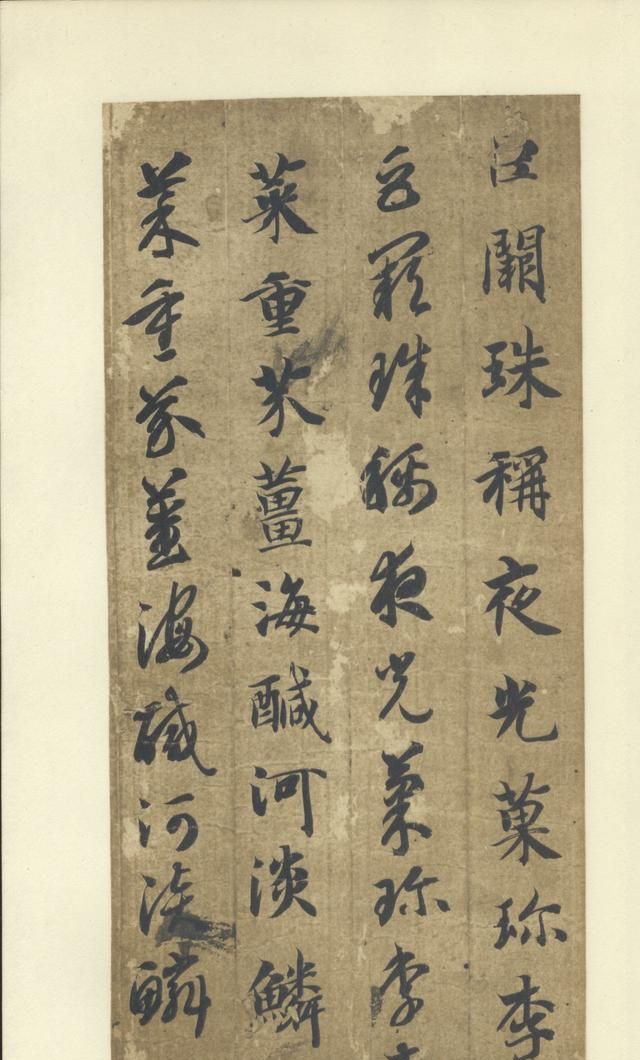 巨闕珠稱夜光菓珎李
巨闕珠稱夜光菓珎李
菜重芥薑海醎河淡鱗
菜重芥薑海醎河淡鱗